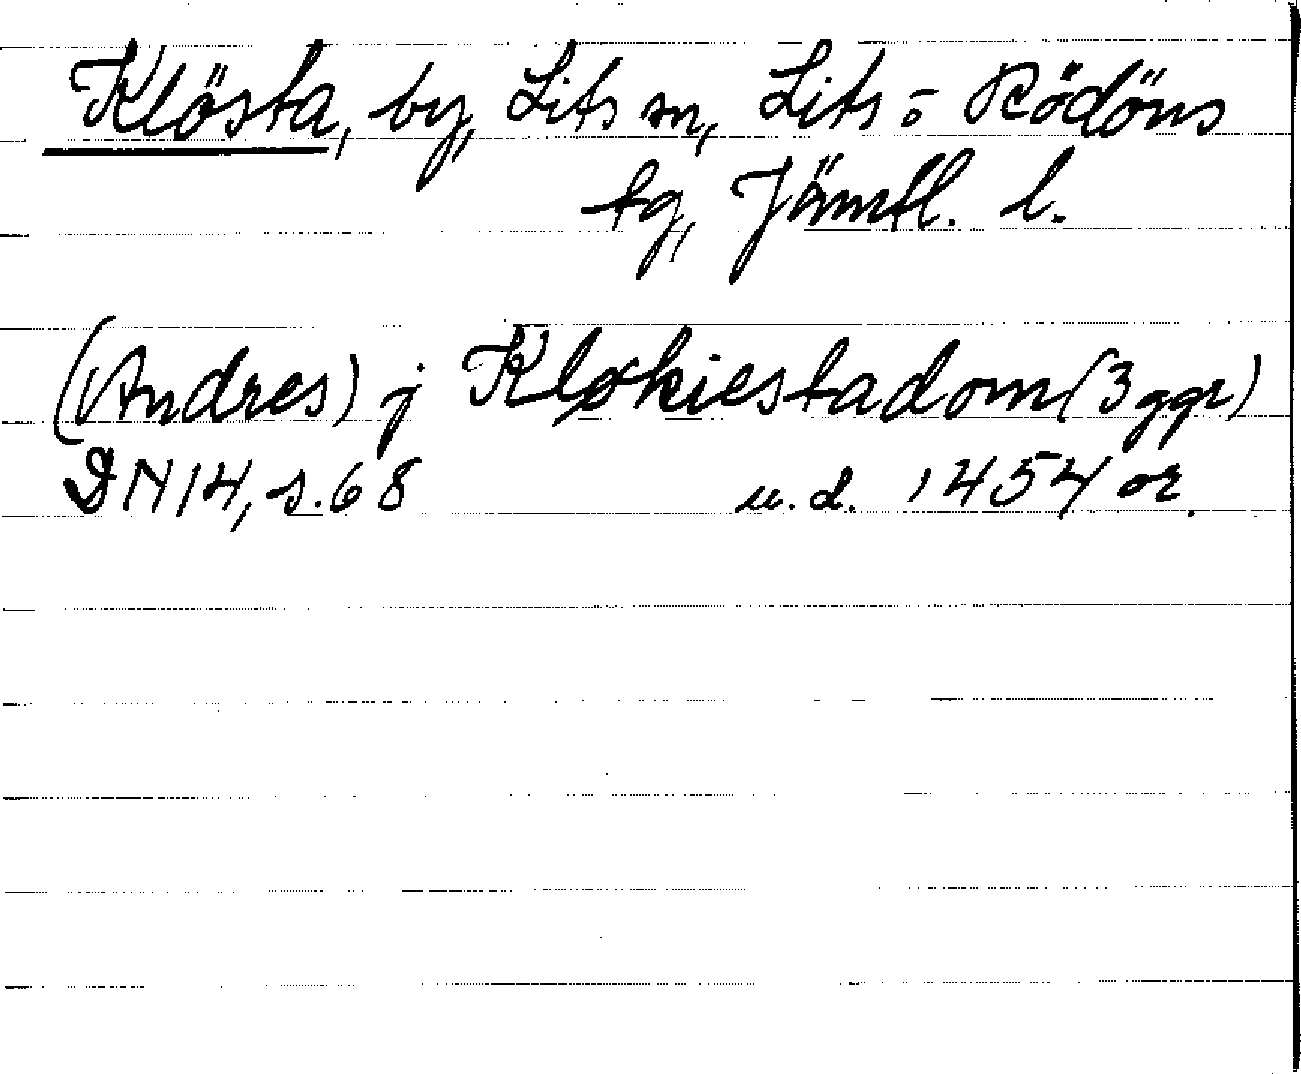 Klösta, by, Lits sn, Lits o Rödöns
tg, Jämtl. l.
(Andres) j Kløkiestadom (3 ggr)
DN 14, s. 68 u. d. 1454 or.